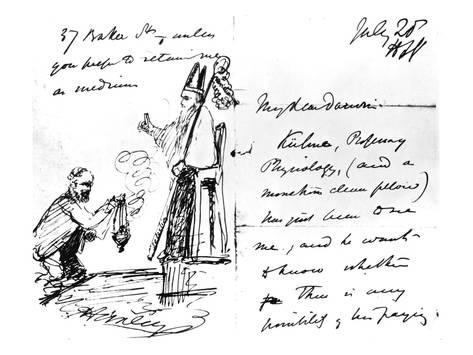 37 Baker St, unless
you prefer to retain me
as medium
Huxley
July 20
1868
My dear Darwin
Kühne, Professor
Physiology, (and a
monstrous clever fellow)
has just been to see
me, and he wants
to know whether
there is any
possibility of his paying